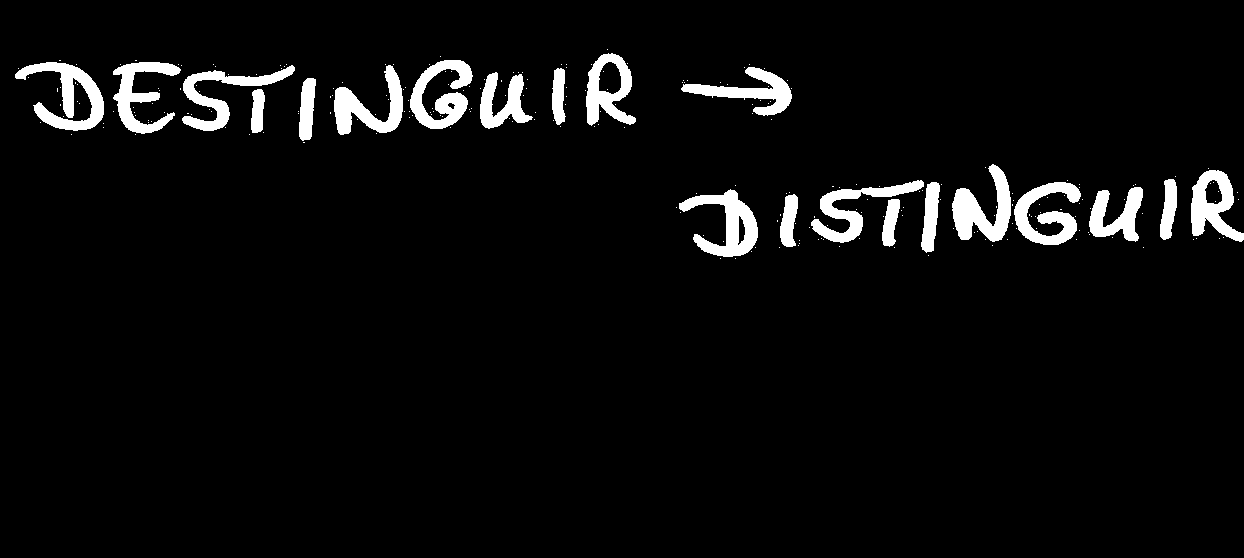 DESTINGUIR →
DISTINGUIR